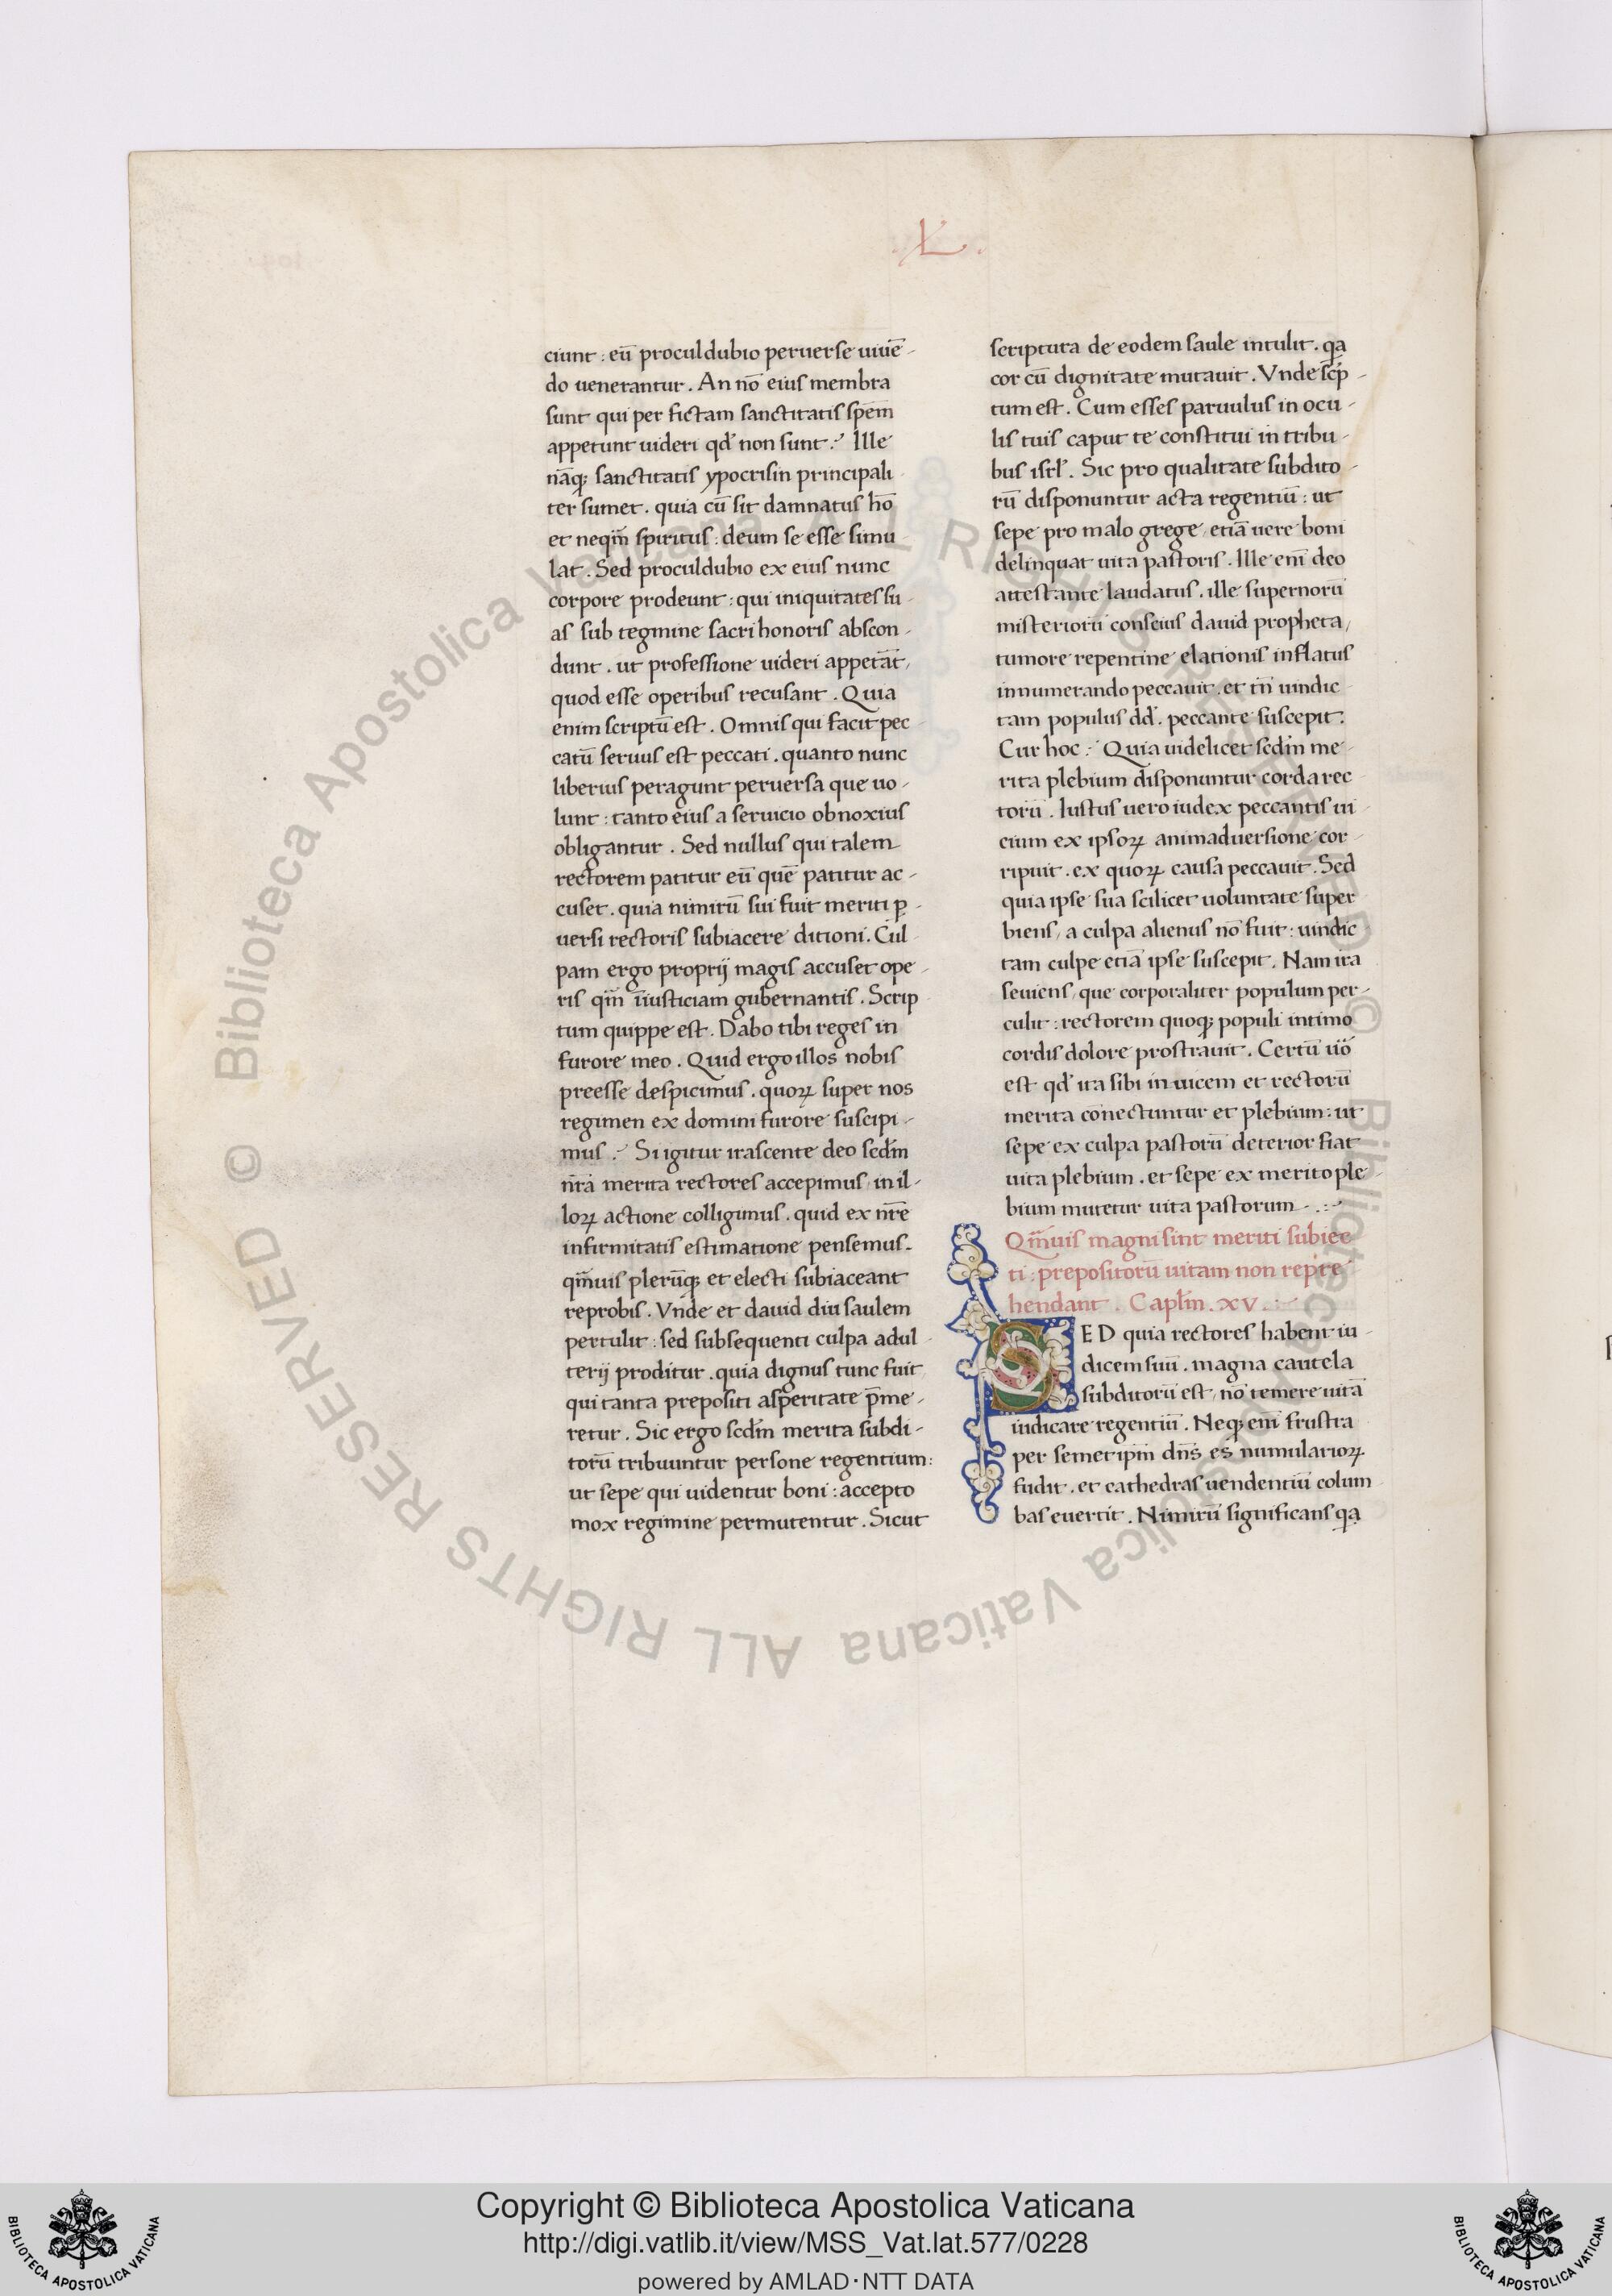 .L.
ciunt : eū procul dubio peruerse uiuē-
do uenerantur . An nō eius membra
sunt qui per fictam sanctitatis spēm
appetunt uideri qđ non sunt .' Ille
nāq; sanctitatis ypocrisin principali
ter sumet . quia cū sit damnatus hō
et neqm̄ spiritus : deum se esse simu
lat . Sed proculdubio ex eius nunc
corpore prodeunt : qui iniquitates su-
as sub tegmine sacri honoris abscon-
dunt . ut professione uideri appetāt,
quod esse operibus recusant . Quia
enim scriptū est . Omnis qui facit pec
catū seruus est peccati . quanto nunc
liberius peragunt peruersa que uo-
lunt : tanto eius a seruicio obnoxius
obligantur . Sed nullus qui talem
rectorem patitur eū quē patitur ac-
cuset . quia nimirū sui fuit meriti ꝑ
uersi rectoris subiacere ditioni . Cul
pam ergo proprij magis accuset ope-
ris qm̄ īiusticiam gubernantis . Scrip
tum quippe est . Dabo tibi reges in
furore meo . Quid ergo illos nobis
preesse despicimus . quoꝝ super nos
regimen ex domini furore suscipi-
mus .' Si igitur irascente deo scdm̄
nr̄a merita rectores accepimus, in il-
loꝝ actione colligimus . quid ex nr̄e
infirmitatis estimatione pensemus.
qm̄uis plerūq; et electi subiaceant
reprobis . Vnde et dauid diu saulem
pertulit : sed subsequenti culpa adul-
terij proditur . quia dignus tunc fuit
qui tanta prepositi asperitate p̄me-
retur . Sic ergo scdm̄ merita subdi-
torū tribuuntur persone regentium :
ut sepe qui uidentur boni : accepto
mox regimine permutentur . Sicut
scriptura de eodem saule intulit . qa
cor cū dignitate mutauit . Vnde scp̄-
tum est . Cum esses paruulus in ocu-
lis tuis caput te constitui in tribu-
bus isrl̄ . Sic pro qualitate subdito-
rū disponuntur acta regentiū : ut
sepe pro malo grege, etiā uere boni
delinquat uita pastoris . Ille eni̅ deo
attestante laudatus . ille supernorū
misteriorū conscius dauid propheta,
tumore repentine elationis inflatus
in numerando peccauit . et tn̄ uindic
tam populus dd̄ . peccante suscepit .
Cur hoc .' Quia uidelicet scdm̄ me-
rita plebium disponuntur corda rec
torū . Iustus uero iudex peccantis ui
cium ex ipsoꝝ animaduersione cor-
ripuit . ex quoꝝ causa peccauit . Sed
quia ipse sua scilicet uoluntate super
biens, a culpa alienus nō fuit : uindic
tam culpe etiā ipse suscepit . Nam ira
seuiens, que corporaliter populum per-
culit : rectorem quoq; populi intimo
cordis dolore prostrauit . Certū uō
est qđ ita sibi inuicem et rectorū
merita conectuntur et plebium : ut
sepe ex culpa pastorū deterior fiat
uita plebium . et sepe ex merito ple-
bium mutetur uita pastorum . : ~
Qm̄uis magni sint meriti subiec
ti : prepositorū uitam non repre-
hendant . Caplm̄ . xv .
SED quia rectores habent iu-
dicem suū . magna cautela
subditorū est, nō temere uitā
iudicare regentiū . Neq; eni̅ frustra
per semetipm̄ dn̄s es nūmularioꝝ
fudit . et cathedras uendentiū colum
bas euertit . Nimirū significans qa
© Biblioteca Apostolica Vaticana ALL RIGHTS RESERVED © Biblioteca Apostolica Vaticana ALL RIGHTS RESERVED
Copyright © Biblioteca Apostolica Vaticana
http://digi.vatlib.it/view/MSS_Vat.lat.577/0228
powered by AMLAD･NTT DATA
BIBLIOTECA APOSTOLICA VATICANA
BIBLIOTECA APOSTOLICA VATICANA